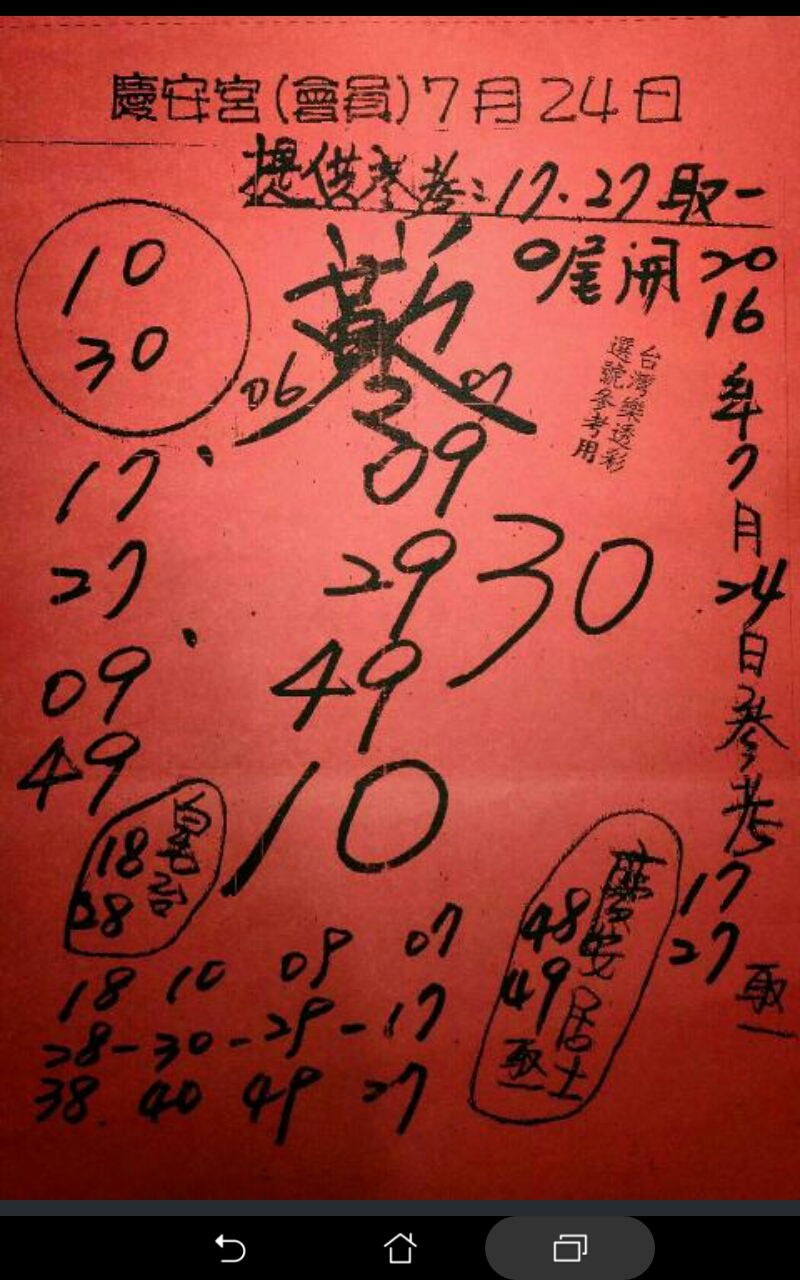 慶安宮(會員)7月24日
提供參考:17.27取一
0尾開
2016年7月24日參考
17
27
取一
台灣樂透彩
選號參考用
10
30
06
07
09
29
30
49
10
17
27
09
49
18
38
18 10 09 07
28-30-29-17
38 40 49 27
慶安居士
48
49
取一